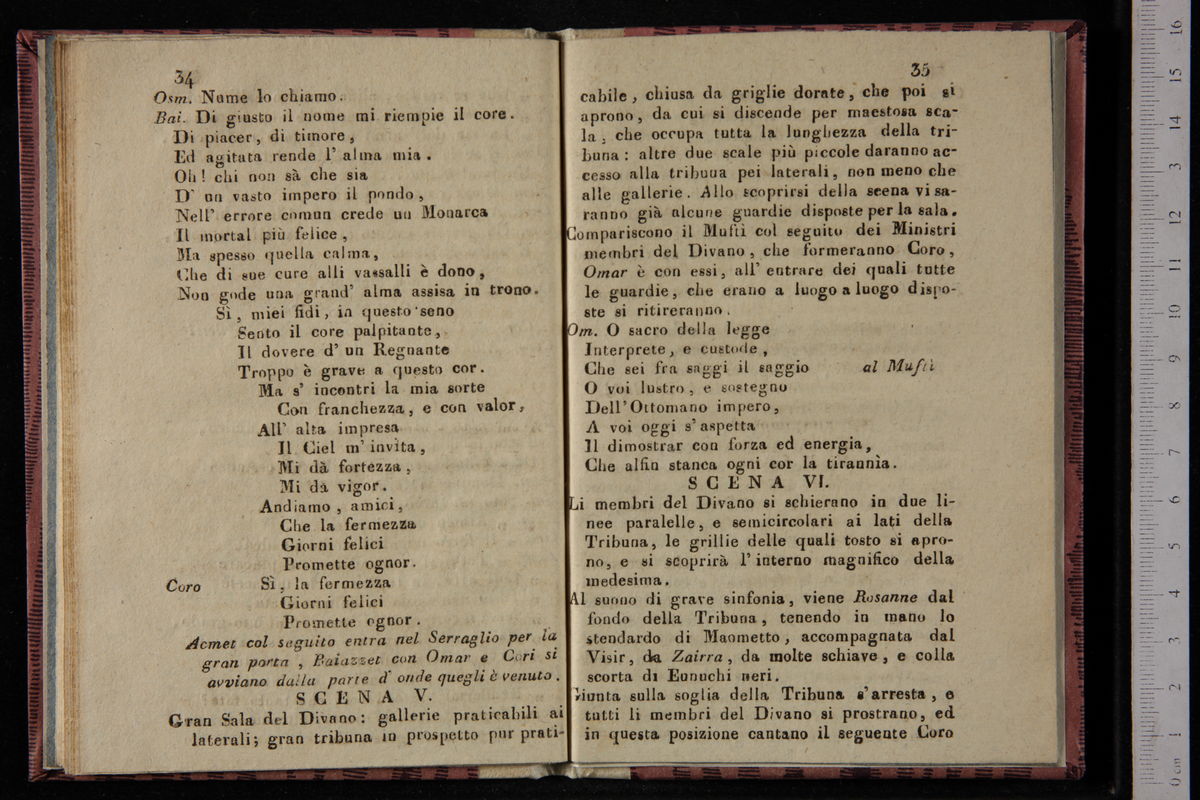 34
Osm. Nume lo chiamo.
Bai. Di giusto il nome mi riempie il core.
Di piacer, di timore,
Ed agitata rende l' alma mia.
Oh! chi non sà che sia
D' un vasto impero il pondo,
Nell' errore comun crede un Monarca
Il mortal più felice,
Ma spesso quella calma,
Che di sue cure alli vassalli è dono,
Non gode una grand' alma assisa in trono.
Sì, miei fidi, in questo seno
Sento il core palpitante,
Il dovere d' un Regnante
Troppo è grave a questo cor.
Ma s' incontri la mia sorte
Con franchezza, e con valor,
All' alta impresa
Il Ciel m' invita,
Mi dà fortezza,
Mi dà vigor.
Andiamo, amici,
Che la fermezza
Giorni felici
Promette ognor.
Coro Sì, la fermezza
Giorni felici
Promette ognor.
Acmet col seguito entra nel Serraglio per la
gran porta, Baiazzet con Omar e Cori si
avviano dalla parte d' onde quegli è venuto.
SCENA V.
Gran Sala del Divano: gallerie praticabili ai
laterali; gran tribuna in prospetto pur prati-
35
cabile, chiusa da griglie dorate, che poi si
aprono, da cui si discende per maestosa sca-
la, che occupa tutta la lunghezza della tri-
buna: altre due scale più piccole daranno ac-
cesso alla tribuua pei laterali, non meno che
alle gallerie. Allo scoprirsi della scena vi sa-
ranno già alcune guardie disposte per la sala.
Compariscono il Muftì col seguito dei Ministri
membri del Divano, che formeranno Coro,
Omar è con essi, all' entrare dei quali tutte
le guardie, che erano a luogo a luogo dispo-
ste si ritireranno.
Om. O sacro della legge
Interprete, e custode,
Che sei fra saggi il saggio al Muftì
O voi lustro, e sostegno
Dell' Ottomano impero,
A voi oggi s' aspetta
Il dimostrar con forza ed energia,
Che alfin stanca ogni cor la tirannìa.
SCENA VI.
Li membri del Divano si schierano in due li-
nee paralelle, e semicircolari ai lati della
Tribuna, le grillie delle quali tosto si apro-
no, e si scoprirà l' interno magnifico della
medesima.
Al suono di grave sinfonia, viene Rosanne dal
fondo della Tribuna, tenendo in mano lo
stendardo di Maometto, accompagnata dal
Visir, da Zairra, da molte schiave, e colla
scorta di Eunuchi neri.
Giunta sulla soglia della Tribuna s' arresta, e
tutti li membri del Divano si prostrano, ed
in questa posizione cantano il seguente Coro
0 cm 1 2 3 4 5 6 7 8 9 10 11 12 13 14 15 16